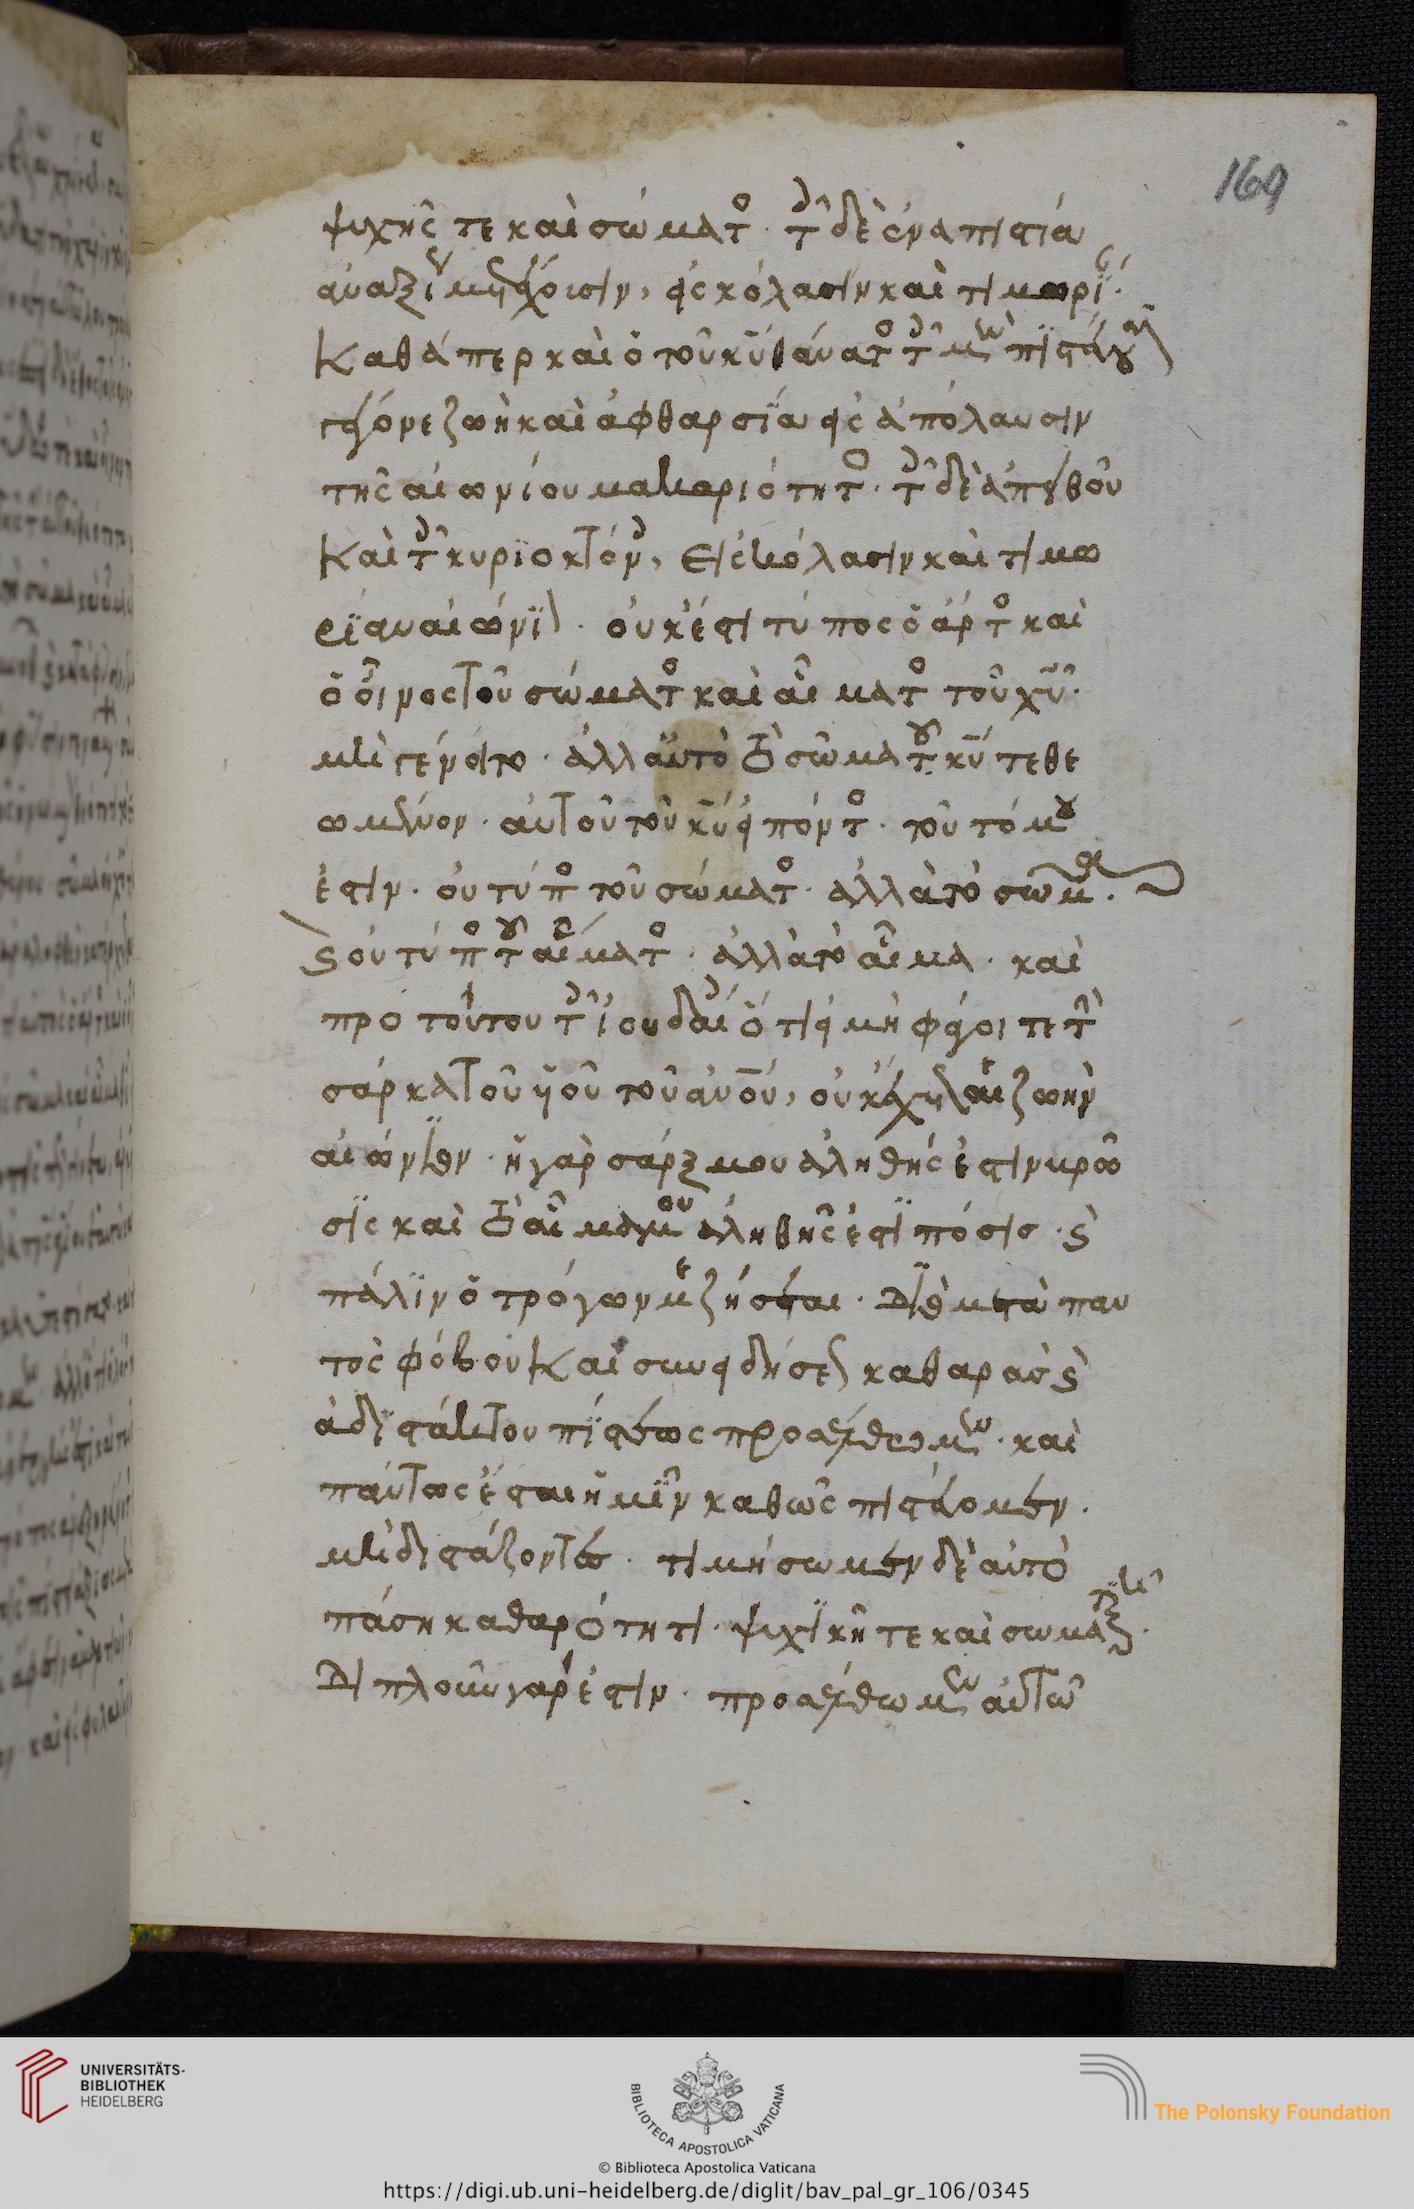 169
ψυχῆς τε καὶ σώματος· τοῖς δὲ ἐν ἀπιστία
ἀναξίως μετέχουσιν, εἰς κόλασιν καὶ τιμωρίαν·
Καθάπερ καὶ ὁ τοῦ κυ θάνατος τοῖς μὲν πιστεύουσι
γέγονε ζωὴ καὶ ἀφθαρσία εἰς ἀπόλαυσιν
τῆς αἰωνίου μακαριότητος· τοῖς δὲ ἀπειθοῦσι
Καὶ τοῖς κυριοκτόνοις, εἰς κόλασιν καὶ τιμω
ρίαν αἰώνιον· οὐκ ἔστι τύπος ὁ ἄρτος καὶ
ὁ οἶνος τοῦ σώματος καὶ αἵματος τοῦ χυ·
μὴ γένοιτο· ἀλλ' αὐτὸ τὸ σῶμα τοῦ κυ τεθε
ωμένον· αὐτοῦ τοῦ κυ εἰπόντος· τοῦτό μου
ἐστιν· οὐ τύπος τοῦ σώματος· ἀλλὰ τὸ σῶμα·
καὶ οὐ τύπος τοῦ αἵματος· ἀλλὰ τὸ αἷμα· καὶ
πρὸ τούτου τοῖς ἰουδαίοις ὅτι εἰ μὴ φάγοιτε τὴν
σάρκα τοῦ υἱοῦ τοῦ ανου, οὐκ ἔχετε ζωὴν
αἰώνιον· ἡ γὰρ σάρξ μου ἀληθής ἐστιν βρῶ
σις καὶ τὸ αἷμά μου ἀληθής ἐστι πόσις· καὶ
πάλιν ὁ τρώγων με ζήσεται· Διὸ μετὰ παν
τὸς φόβου Καὶ συνειδήσεως καθαρᾶς καὶ
ἀδιστάκτου πίστεως προσέλθωμεν· καὶ
πάντως ἔσται ἡμῖν καθὼς πιστεύομεν·
μὴ διστάζοντες· τιμήσωμεν δὲ αὐτὸ
πάση καθαρότητι· ψυχικῆ τε καὶ σωματικῆ·
Διπλοῦν γάρ ἐστιν· προσέλθωμεν αὐτῶ
UNIVERSITÄTS-
BIBLIOTHEK
HEIDELBERG
BIBLIOTECA APOSTOLICA VATICANA
The Polonsky Foundation
© Biblioteca Apostolica Vaticana
https://digi.ub.uni-heidelberg.de/diglit/bav_pal_gr_106/0345